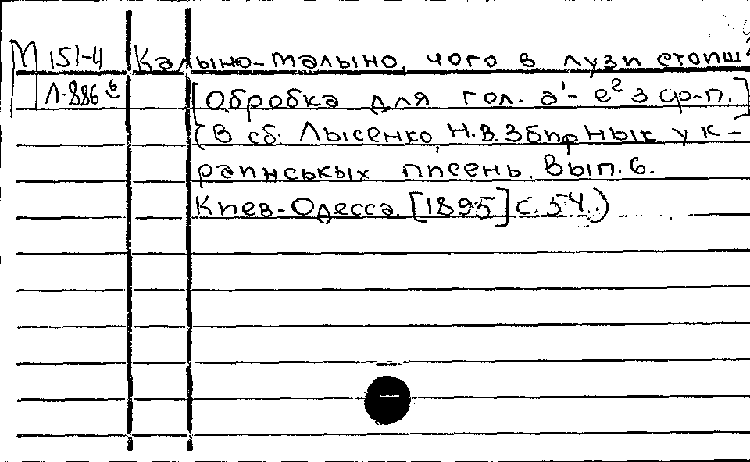 М 151-4 Калыно-малыно, чого в лузи стопш
Л-886 в [Обробка для гол. a¹- e² з ср-п.]
(В сб: Лысенко, Н.В. Збирнык ук-
раинськых писень. Вып. 6.
Киев-Одесса. [1895] с. 54.)